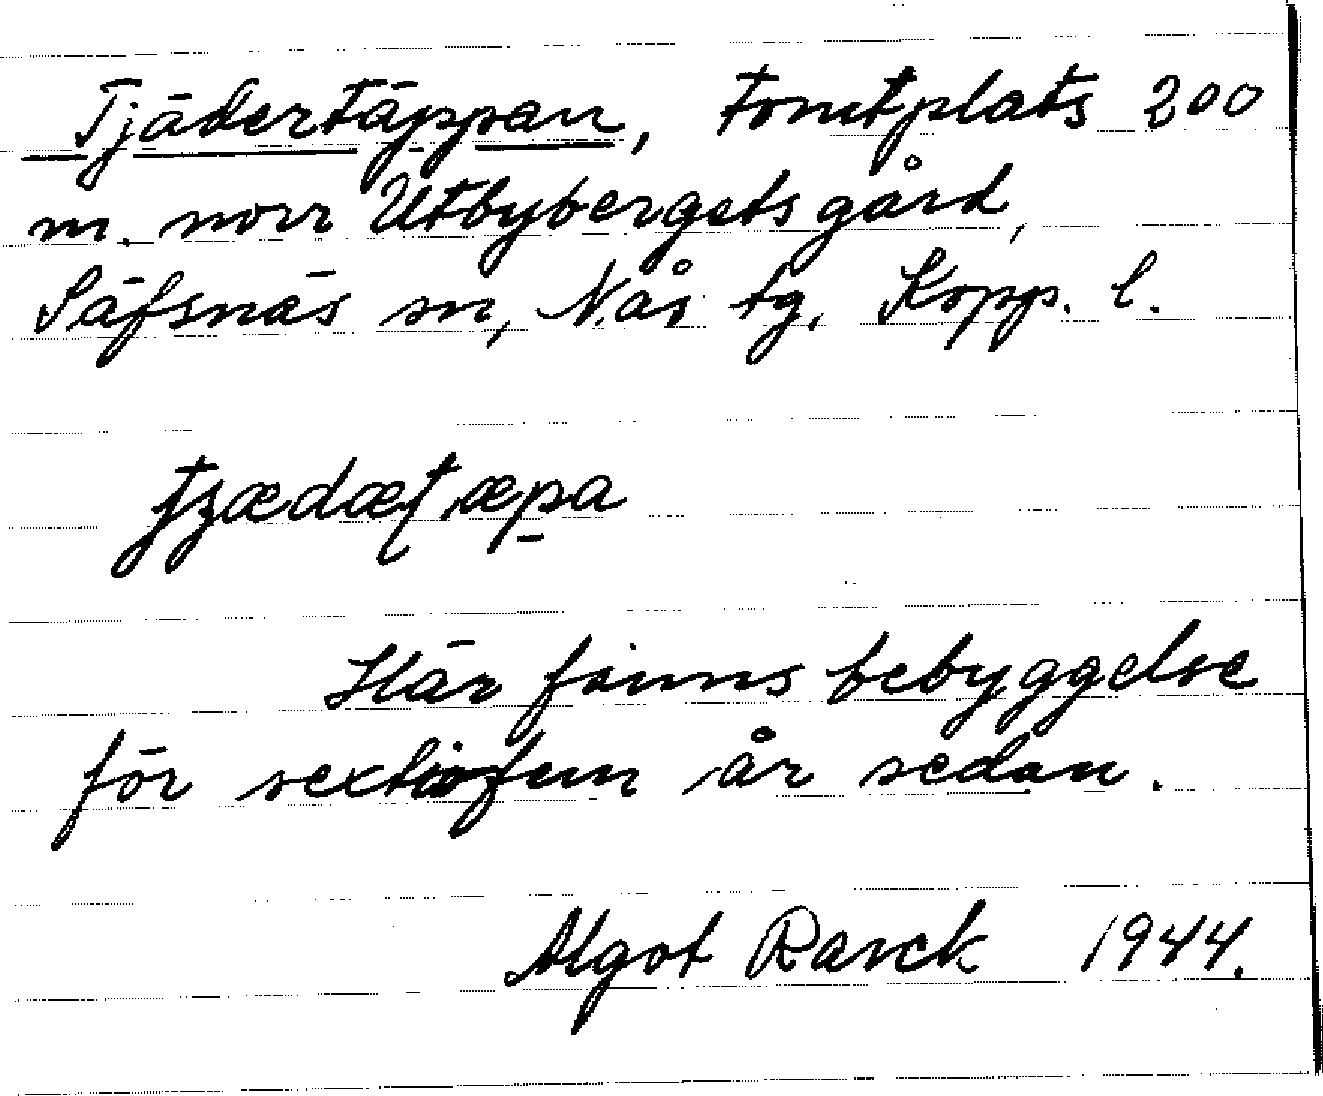 Tjädertäppan, Tomtplats 200
m. norr Utbybergets gård,
Säfsnäs sn, Nås tg, Kopp. l.
tʒædæʈæpa
Här finns bebyggelse
för sextiofem år sedan.
Algot Rarck 1944.